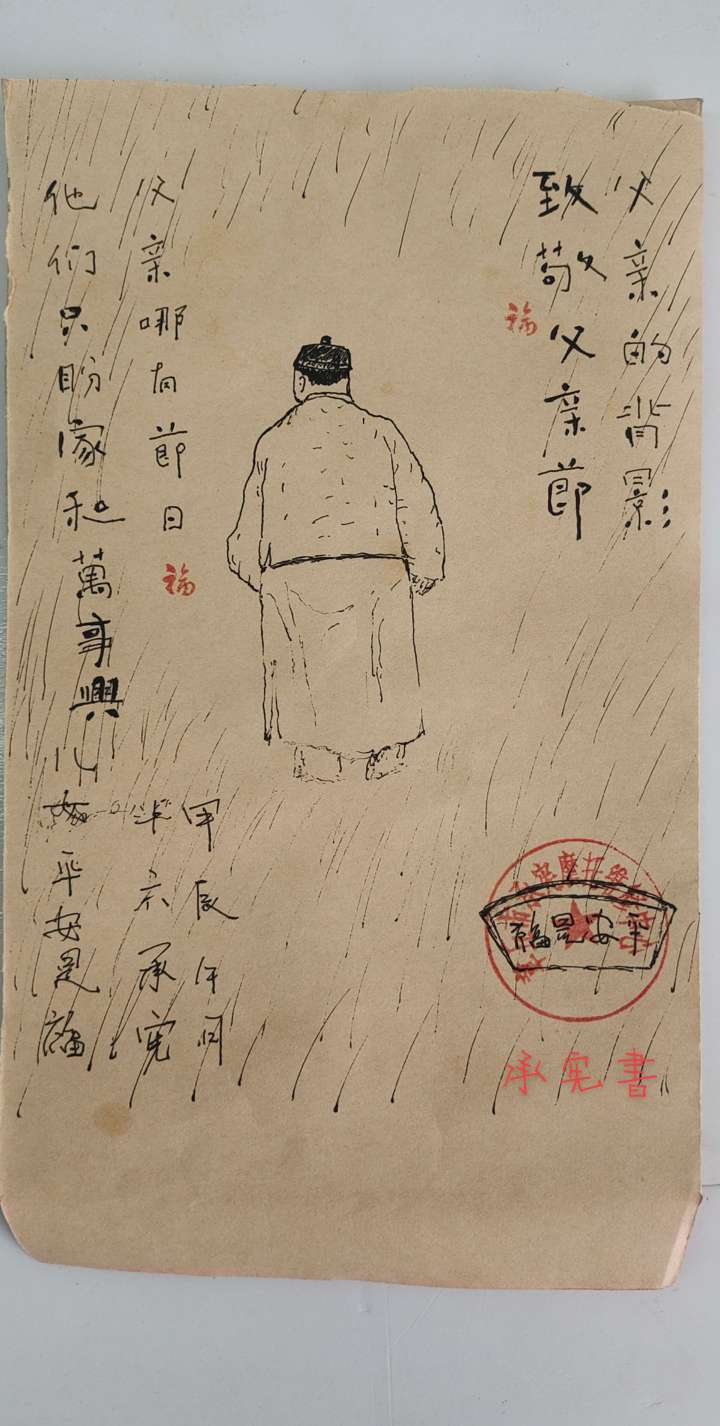 父亲的背影
致敬父亲节
福
父亲哪有節日
福
他们只盼家和萬事興
平安是福
甲辰年
承宪
平安是福
承宪書